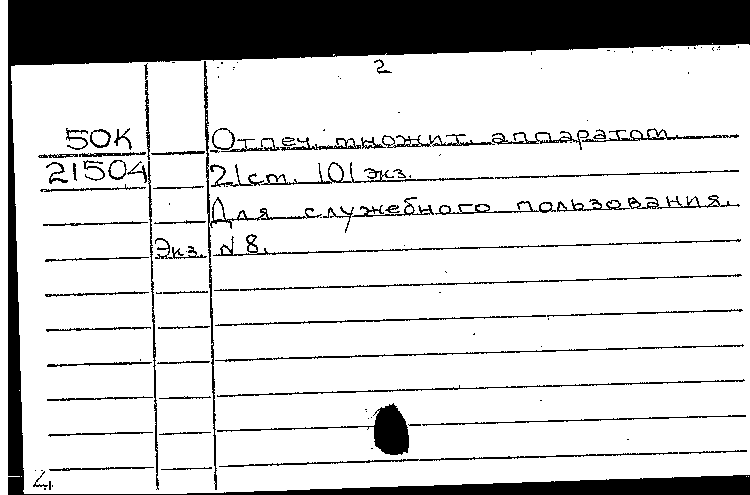 2
50К Отпеч. множит. аппаратом.
21504 21 ст. 101 экз.
Для служебного пользования.
Экз. N 8.